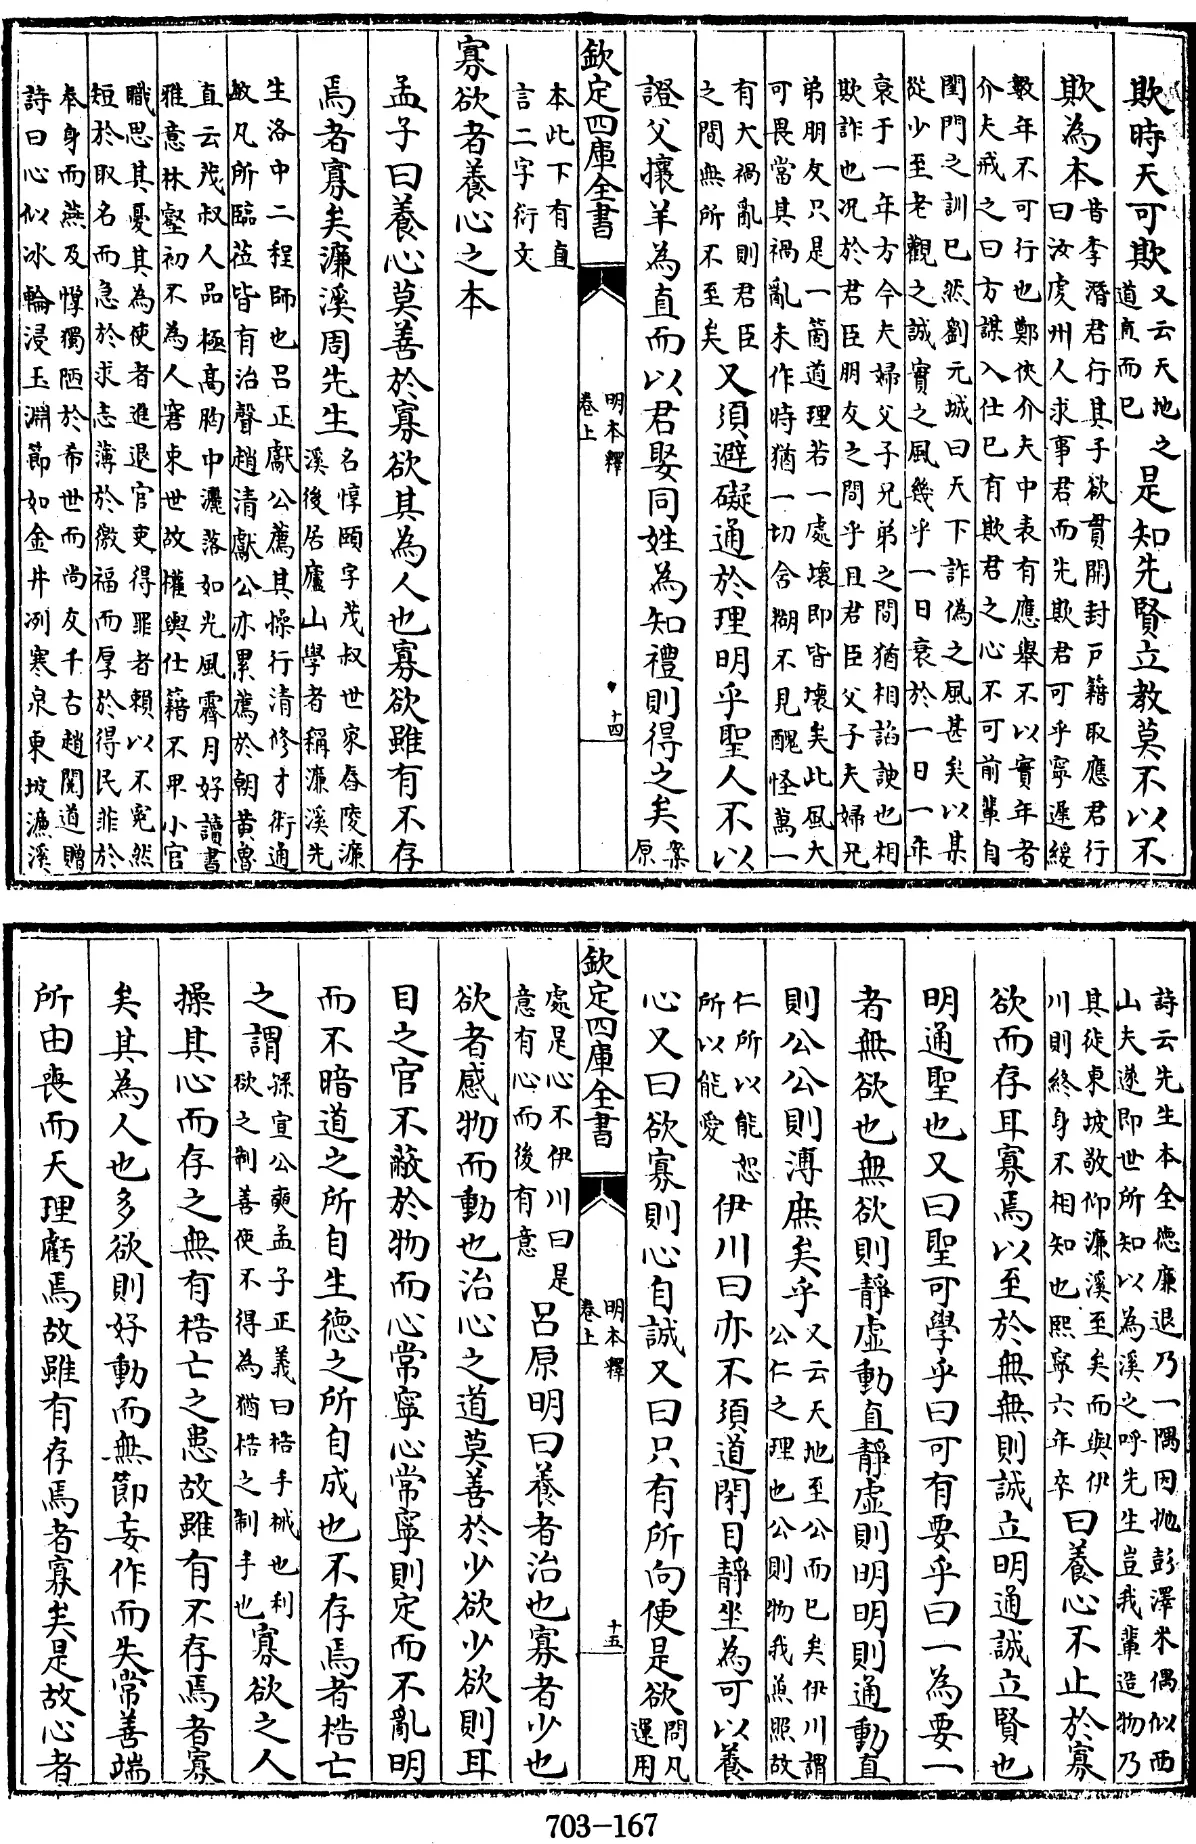 欺時天可欺又云天地之道直而已是知先賢立教莫不以不
欺為本昔李潛君行其子欲貫開封戶籍取應君行
曰汝虔州人求事君而先欺君可乎寧遲緩
數年不可行也鄭俠介夫中表有應舉不以實年者
介夫戒之曰方謀入仕已有欺君之心不可前輩自
閨門之訓已然劉元城曰天下詐偽之風甚矣以某
從少至老觀之誠實之風幾乎一日衰於一日一年
衰于一年方今夫婦父子兄弟之間猶相諂諛也相
欺詐也况於君臣朋友之間乎且君臣父子夫婦兄
弟朋友只是一箇道理若一處壞即皆壞矣此風大
可畏當其禍亂未作時猶一切含糊不見醜怪萬一
有大禍亂則君臣
之間無所不至矣又須避礙通於理明乎聖人不以
證父攘羊為直而以君娶同姓為知禮則得之矣案原
欽定四庫全書 明本釋 卷上 十四
本此下有直
言二字衍文
寡欲者養心之本
孟子曰養心莫善於寡欲其為人也寡欲雖有不存
焉者寡矣濂溪周先生名惇頤字茂叔世家舂陵濂
溪後居廬山學者稱濂溪先
生洛中二程師也呂正獻公薦其操行清修才術通
敏凡所臨莅皆有治聲趙清獻公亦累薦於朝黄魯
直云茂叔人品極高胸中灑落如光風霽月好讀書
雅意林壑初不為人窘束世故權輿仕籍不卑小官
職思其憂其為使者進退官吏得罪者賴以不寃然
短於取名而急於求志薄於徼福而厚於得民菲於
奉身而燕及惸獨陋於希世而尚友千古趙閱道贈
詩曰心似冰輪浸玉淵節如金井冽寒泉東坡濂溪
詩云先生本全德廉退乃一隅因抛彭澤米偶似西
山夫遂即世所知以為溪之呼先生豈我輩造物乃
其徒東坡敬仰濂溪至矣而與伊
川則終身不相知也熙寧六年卒曰養心不止於寡
欲而存耳寡焉以至於無無則誠立明通誠立賢也
明通聖也又曰聖可學乎曰可有要乎曰一為要一
者無欲也無欲則靜虛動直靜虛則明明則通動直
則公公則溥庶矣乎又云天地至公而已矣伊川謂
公仁之理也公則物我兼照故
仁所以能恕
所以能愛伊川曰亦不須道閉目靜坐為可以養
心又曰欲寡則心自誠又曰只有所向便是欲問凡運用
欽定四庫全書 明本釋 卷上 十五
處是心不伊川曰是
意有心而後有意呂原明曰養者治也寡者少也
欲者感物而動也治心之道莫善於少欲少欲則耳
目之官不蔽於物而心常寧心常寧則定而不亂明
而不暗道之所自生德之所自成也不存焉者梏亡
之謂孫宣公奭孟子正義曰梏手械也利
欲之制善使不得為猶梏之制手也寡欲之人
操其心而存之無有梏亡之患故雖有不存焉者寡
矣其為人也多欲則好動而無節妄作而失常善端
所由喪而天理虧焉故雖有存焉者寡矣是故心者
703-167